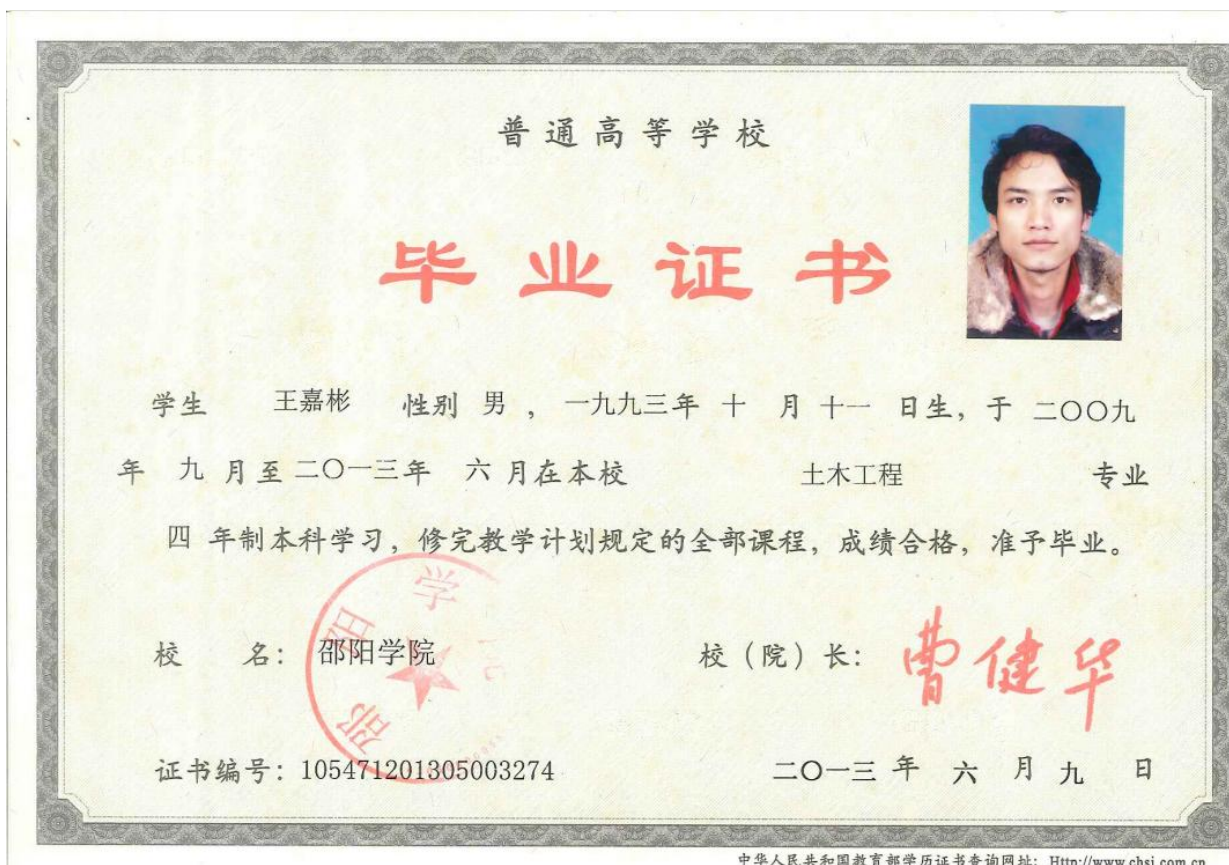 普通高等学校
毕业证书
学生 王嘉彬 性别 男 , 一九九三年 十 月 十一 日生, 于 二〇〇九
年 九 月至 二〇一三年 六 月在本校 土木工程 专业
四 年制本科学习, 修完教学计划规定的全部课程, 成绩合格, 准予毕业。
校 名: 邵阳学院 校 (院) 长: 曹健华
邵阳学院
证书编号: 105471201305003274 二〇一三 年 六 月 九 日
中华人民共和国教育部学历证书查询网址: Http://www.chsi.com.cn